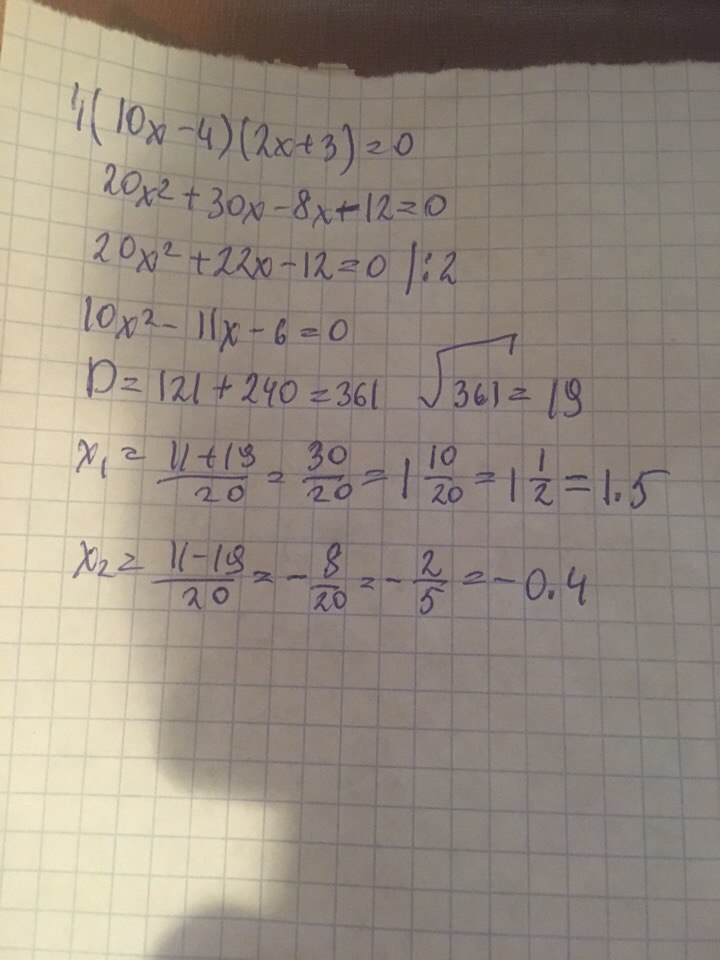 4(10x-4)(2x+3)=0
20x²+30x-8x-12=0
20x²+22x-12=0 |:2
10x²-11x-6=0
D=121+240=361 √361=19
x₁=(11+19)/20=30/20=1 10/20=1 1/2=1.5
x₂=(11-19)/20=-8/20=-2/5=-0.4